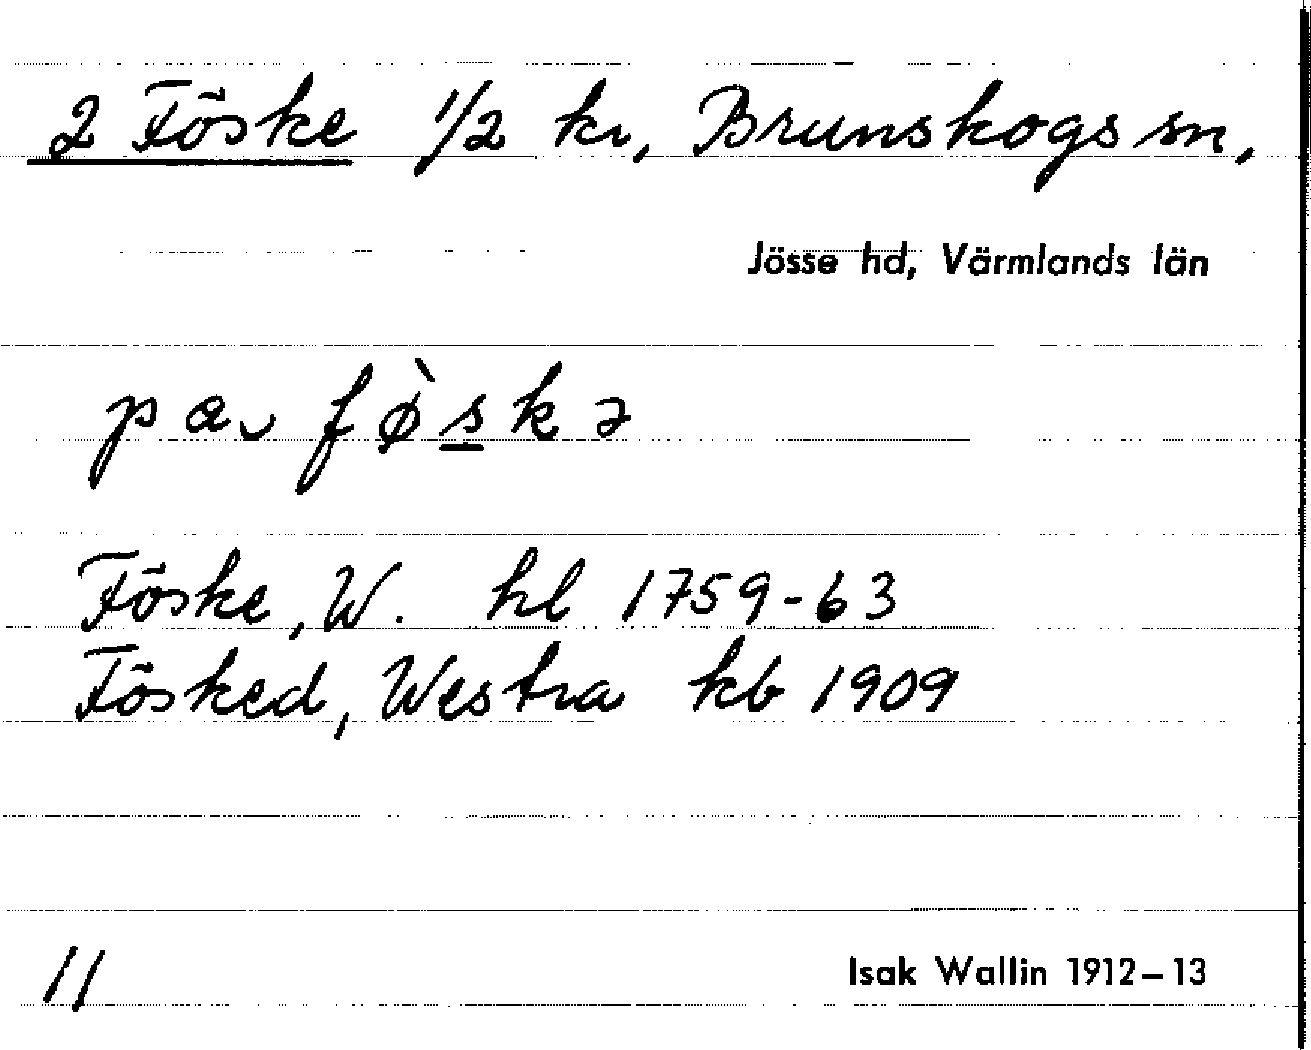 2 Föske 1/2 kr, Brunskogs sn,
Jösse hd, Värmlands län
pa fø̀skə
Föske, W. hl 1759-63
Fösked, Westra kb 1909
11
Isak Wallin 1912–13